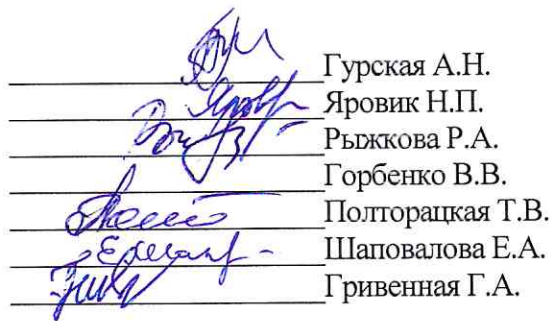 Гурская А.Н.
Яровик Н.П.
Рыжкова Р.А.
Горбенко В.В.
Полторацкая Т.В.
Шаповалова Е.А.
Гривенная Г.А.